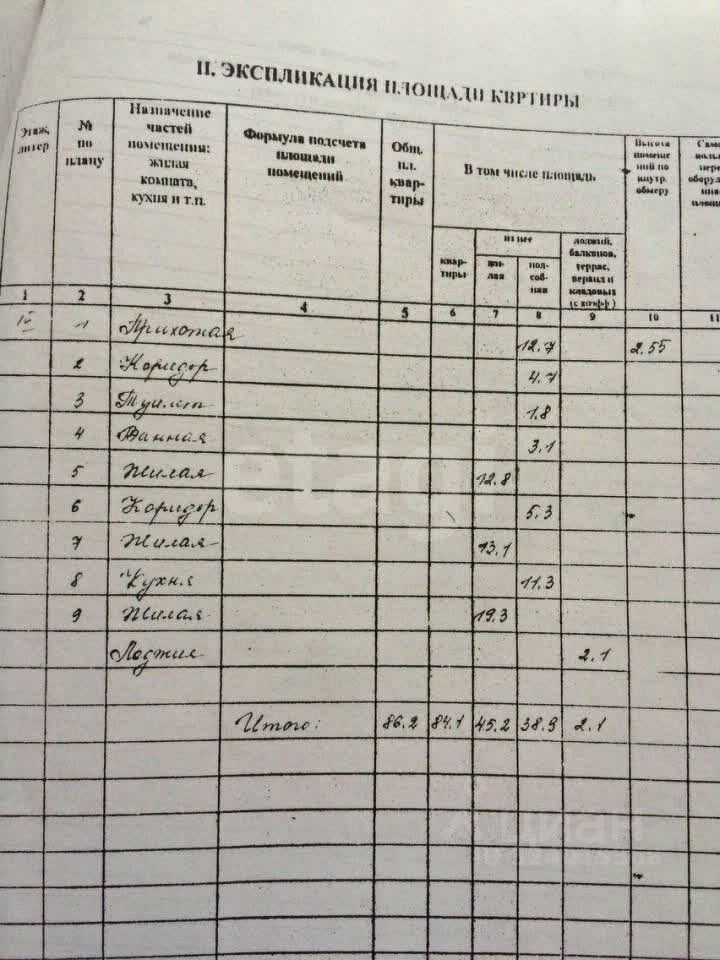 II. ЭКСПЛИКАЦИЯ ПЛОЩАДИ КВРТИРЫ
Этаж, литер
№ по плану
Назначение частей помещения: жилая комната, кухня и т.п.
Формула подсчета площади помещений
Общ. пл. квартиры
В том числе площадь
Высота помещений по внутр. обмеру
из нее
квартиры
жилая
подсобная
лоджий, балконов, террас, веранд и кладовых (с коэфф)
1 2 3 4 5 6 7 8 9 10 11
1 Прихожая 12.7 2.55
2 Коридор 4.7
3 Туалет 1.8
4 Ванная 3.1
5 Жилая 12.8
6 Коридор 5.3
7 Жилая 13.1
8 Кухня 11.3
9 Жилая 19.3
Лоджия 2.1
Итого: 86.2 84.1 45.2 38.9 2.1
etagi
циан